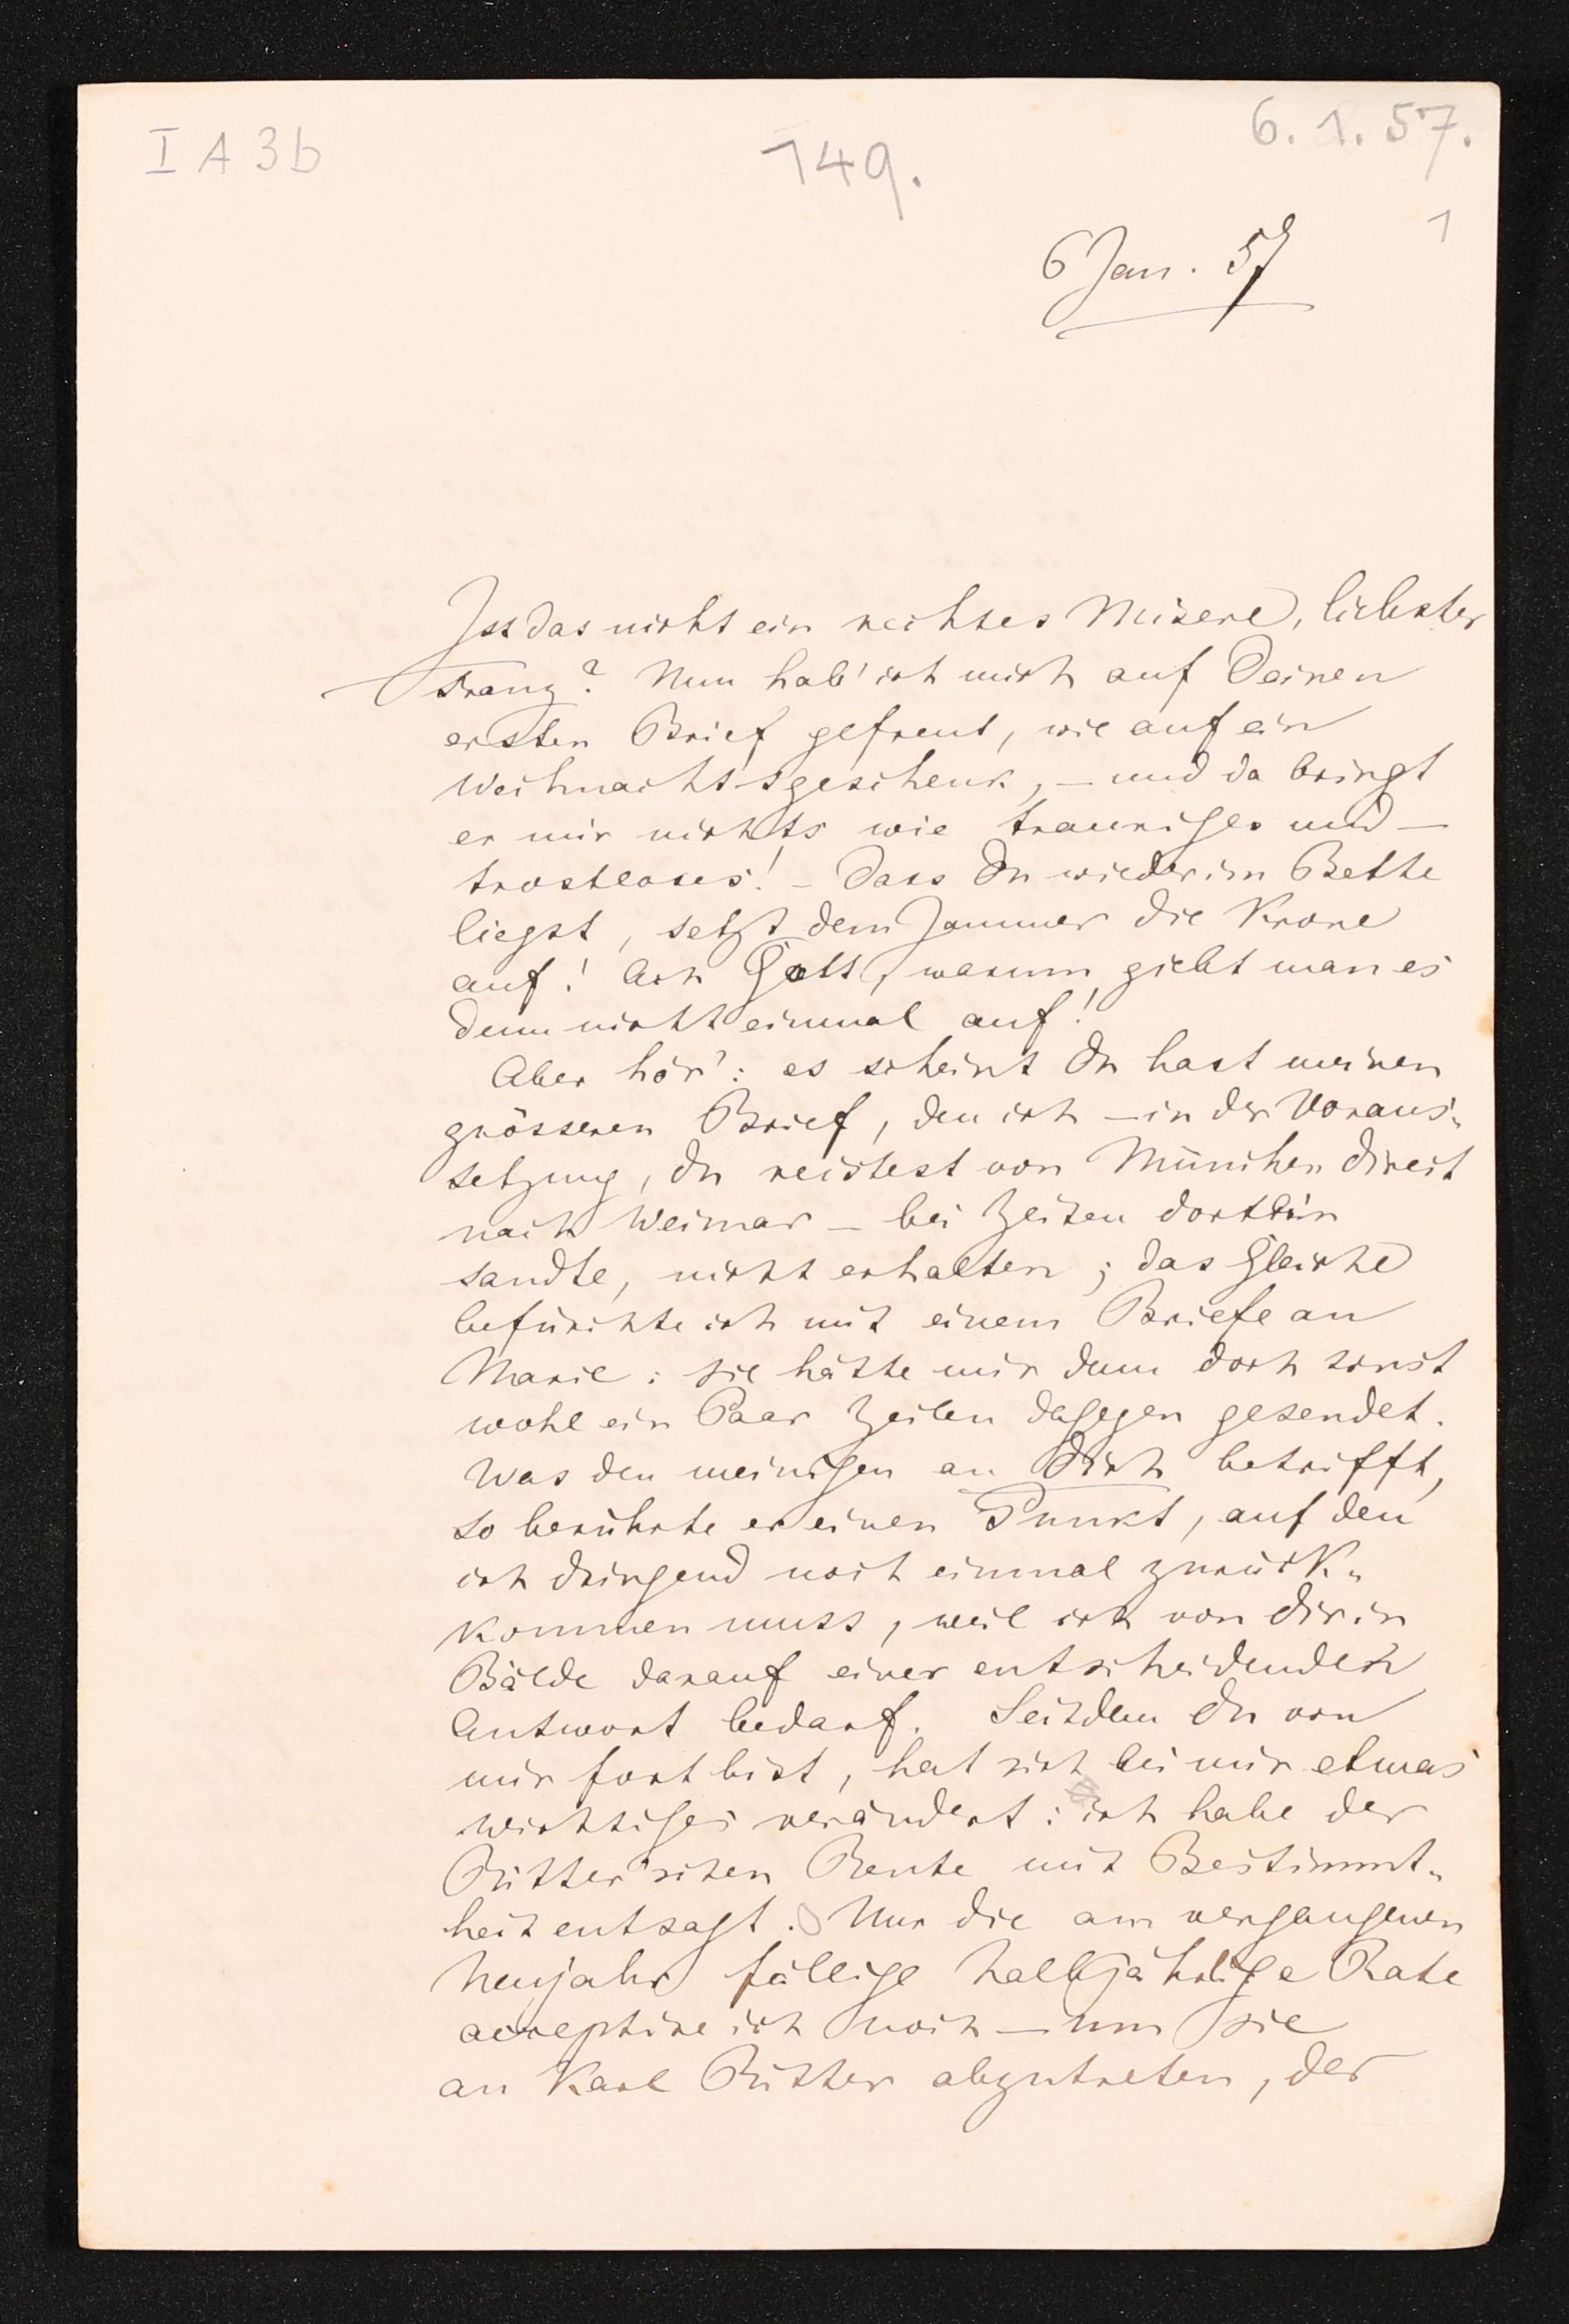 I A 3b
149.
6. 1. 57.
1
6 Jan. 57
Ist das nicht ein rechtes Misere, liebster
Franz? Nun hab' ich mich auf Deinen
ersten Brief gefreut, wie auf ein
Weihnachtsgeschenk, — und da bringt
er mir nichts wie trauriges und —
trostloses! — Dass Du wieder im Bette
liegst, setzt dem Jammer die Krone
auf! Ach Gott, warum giebt man es
denn nicht einmal auf!
Aber hör': es scheint Du hast meinen
grösseren Brief, den ich — in der Voraus-
setzung, Du reistest von München direct
nach Weimar — bei Zeiten dorthin
sandte, nicht erhalten; das Gleiche
befürchte ich mit einem Briefe an
Marie: sie hätte mir denn doch sonst
wohl ein Paar Zeilen dagegen gesendet.
Was den meinigen an Dich betrifft,
so berührte er einen Punkt, auf den
ich dringend noch einmal zurück-
kommen muss, weil ich von Dir in
Bälde darauf einer entscheidenden
Antwort bedarf. Seitdem Du von
mir fort bist, hat sich bei mir etwas
wichtiges verändert: ich habe der
Ritter'schen Rente mit Bestimmt-
heit entsagt. Nur die am vergangenen
Neujahr fällige halbjährige Rate
acceptire ich noch — um sie
an Karl Ritter abzutreten, der